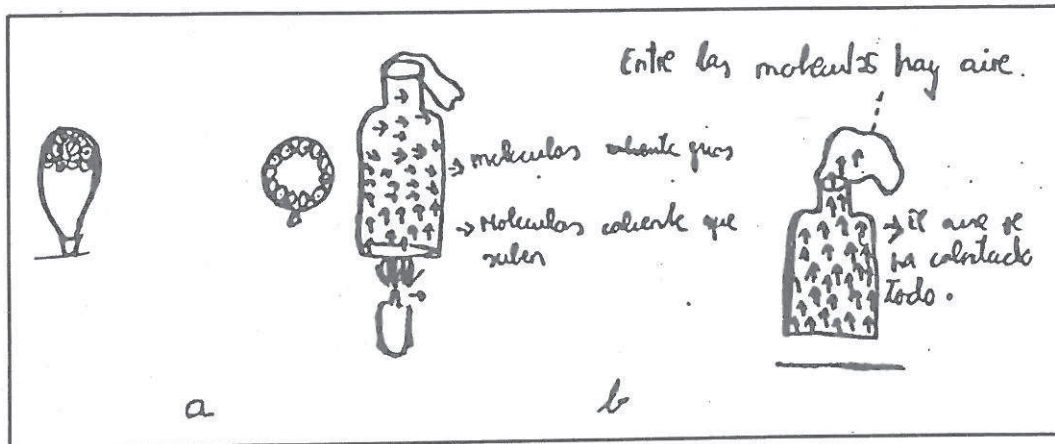 Entre las moleculas hay aire.
→ moleculas
→ Moleculas caliente que
suben
→ El aire se
ha calentado
todo.
a
b